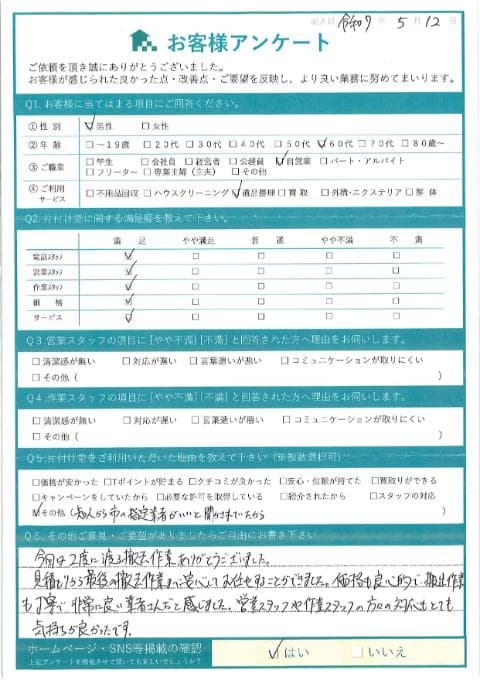 記入日 令和7 年 5 月 12 日
お客様アンケート
ご依頼を頂き誠にありがとうございました。
お客様が感じられた良かった点・改善点・ご要望を反映し、より良い業務に努めてまいります。
Q1. お客様に当てはまる項目にご回答ください。
①性別 ☑男性 □女性
②年齢 □～19歳 □20代 □30代 □40代 □50代 ☑60代 □70代 □80歳～
③ご職業 □学生 □会社員 □経営者 □公務員 ☑自営業 □パート・アルバイト
□フリーター □専業主婦（主夫） □その他
④ご利用サービス □不用品回収 □ハウスクリーニング ☑遺品整理 □買取 □外構・エクステリア □解体
Q2. 片付け堂に関する満足度を教えて下さい。
満足 やや満足 普通 やや不満 不満
電話スタッフ ☑ □ □ □ □
営業スタッフ ☑ □ □ □ □
作業スタッフ ☑ □ □ □ □
価格 ☑ □ □ □ □
サービス ☑ □ □ □ □
Q3. 営業スタッフの項目に［やや不満］［不満］と回答された方へ理由をお伺いします。
□清潔感が無い □対応が遅い □言葉遣いが悪い □コミュニケーションが取りにくい
□その他（ ）
Q4. 作業スタッフの項目に［やや不満］［不満］と回答された方へ理由をお伺いします。
□清潔感が無い □対応が遅い □言葉遣いが悪い □コミュニケーションが取りにくい
□その他（ ）
Q5. 片付け堂をご利用いただいた理由を教えて下さい（※複数選択可）
□価格が安かった □Tポイントが貯まる □クチコミが良かった □安心・信頼が持てた □買取りができる
□キャンペーンをしていたから □必要な許可を取得している □紹介されたから □スタッフの対応
☑その他（知人から市の指定業者がいいと聞かされていたから ）
Q6. その他ご意見・ご要望がありましたらご自由にお書き下さい
今回は2度に渡る撤去作業ありがとうございました。
見積りから最後の撤去作業まで安心してお任せすることができました。価格も良心的で搬出作業
も丁寧で非常に良い業者さんだと感じました。営業スタッフや作業スタッフの方々の対応もとても
気持ち良かったです。
ホームページ・SNS等掲載の確認 ☑はい □いいえ
上記アンケートを掲載させて頂いても宜しいでしょうか？